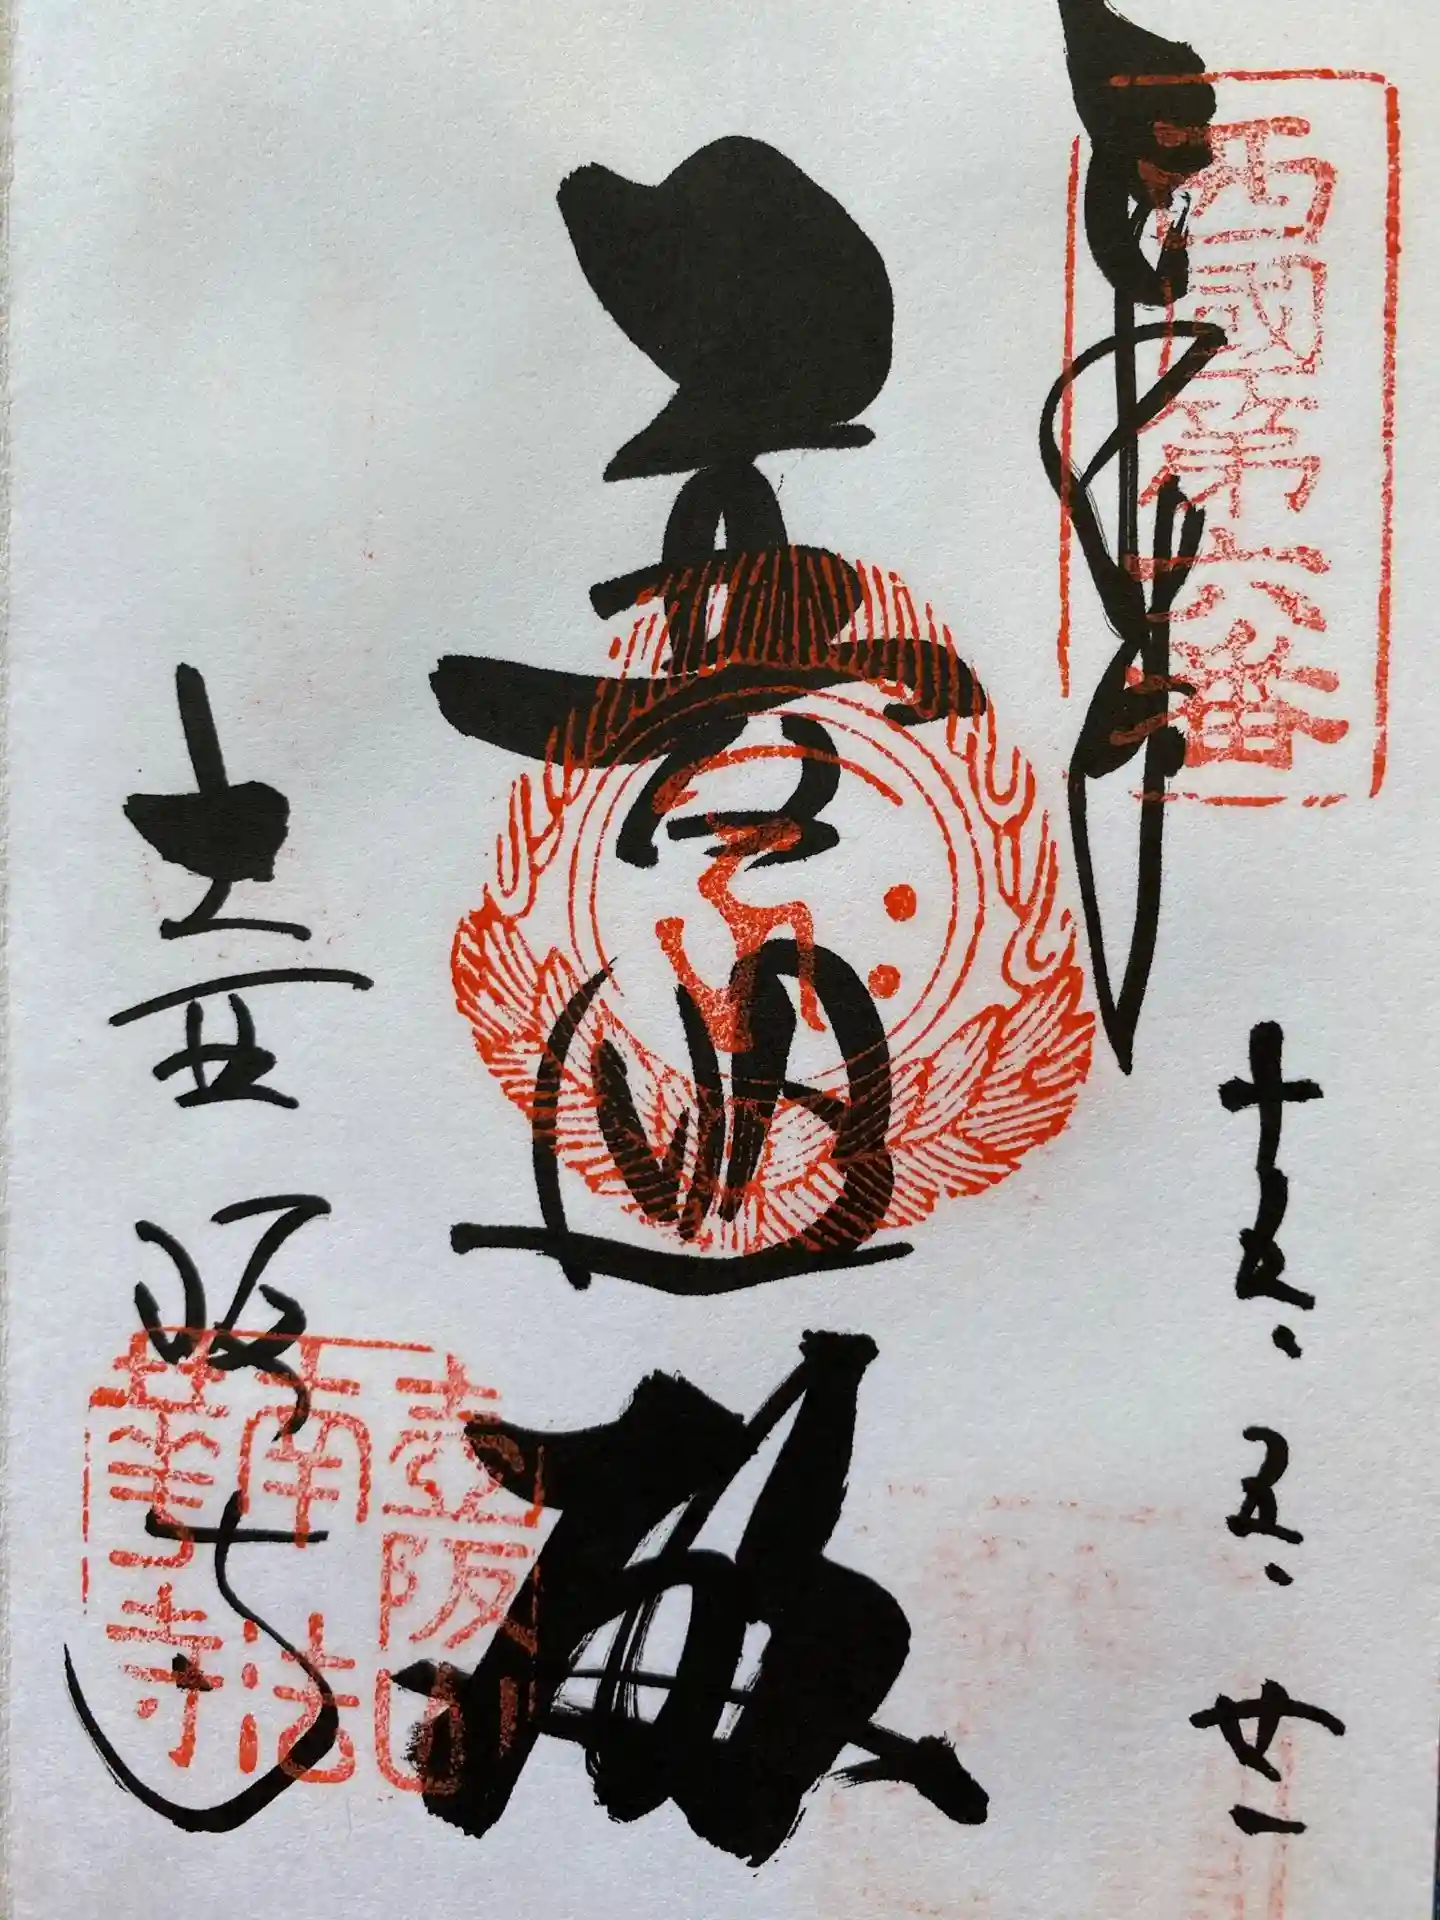 西國第六番
奉拝
十五.五.廿一
壺阪寺
壺阪山
南法
華寺